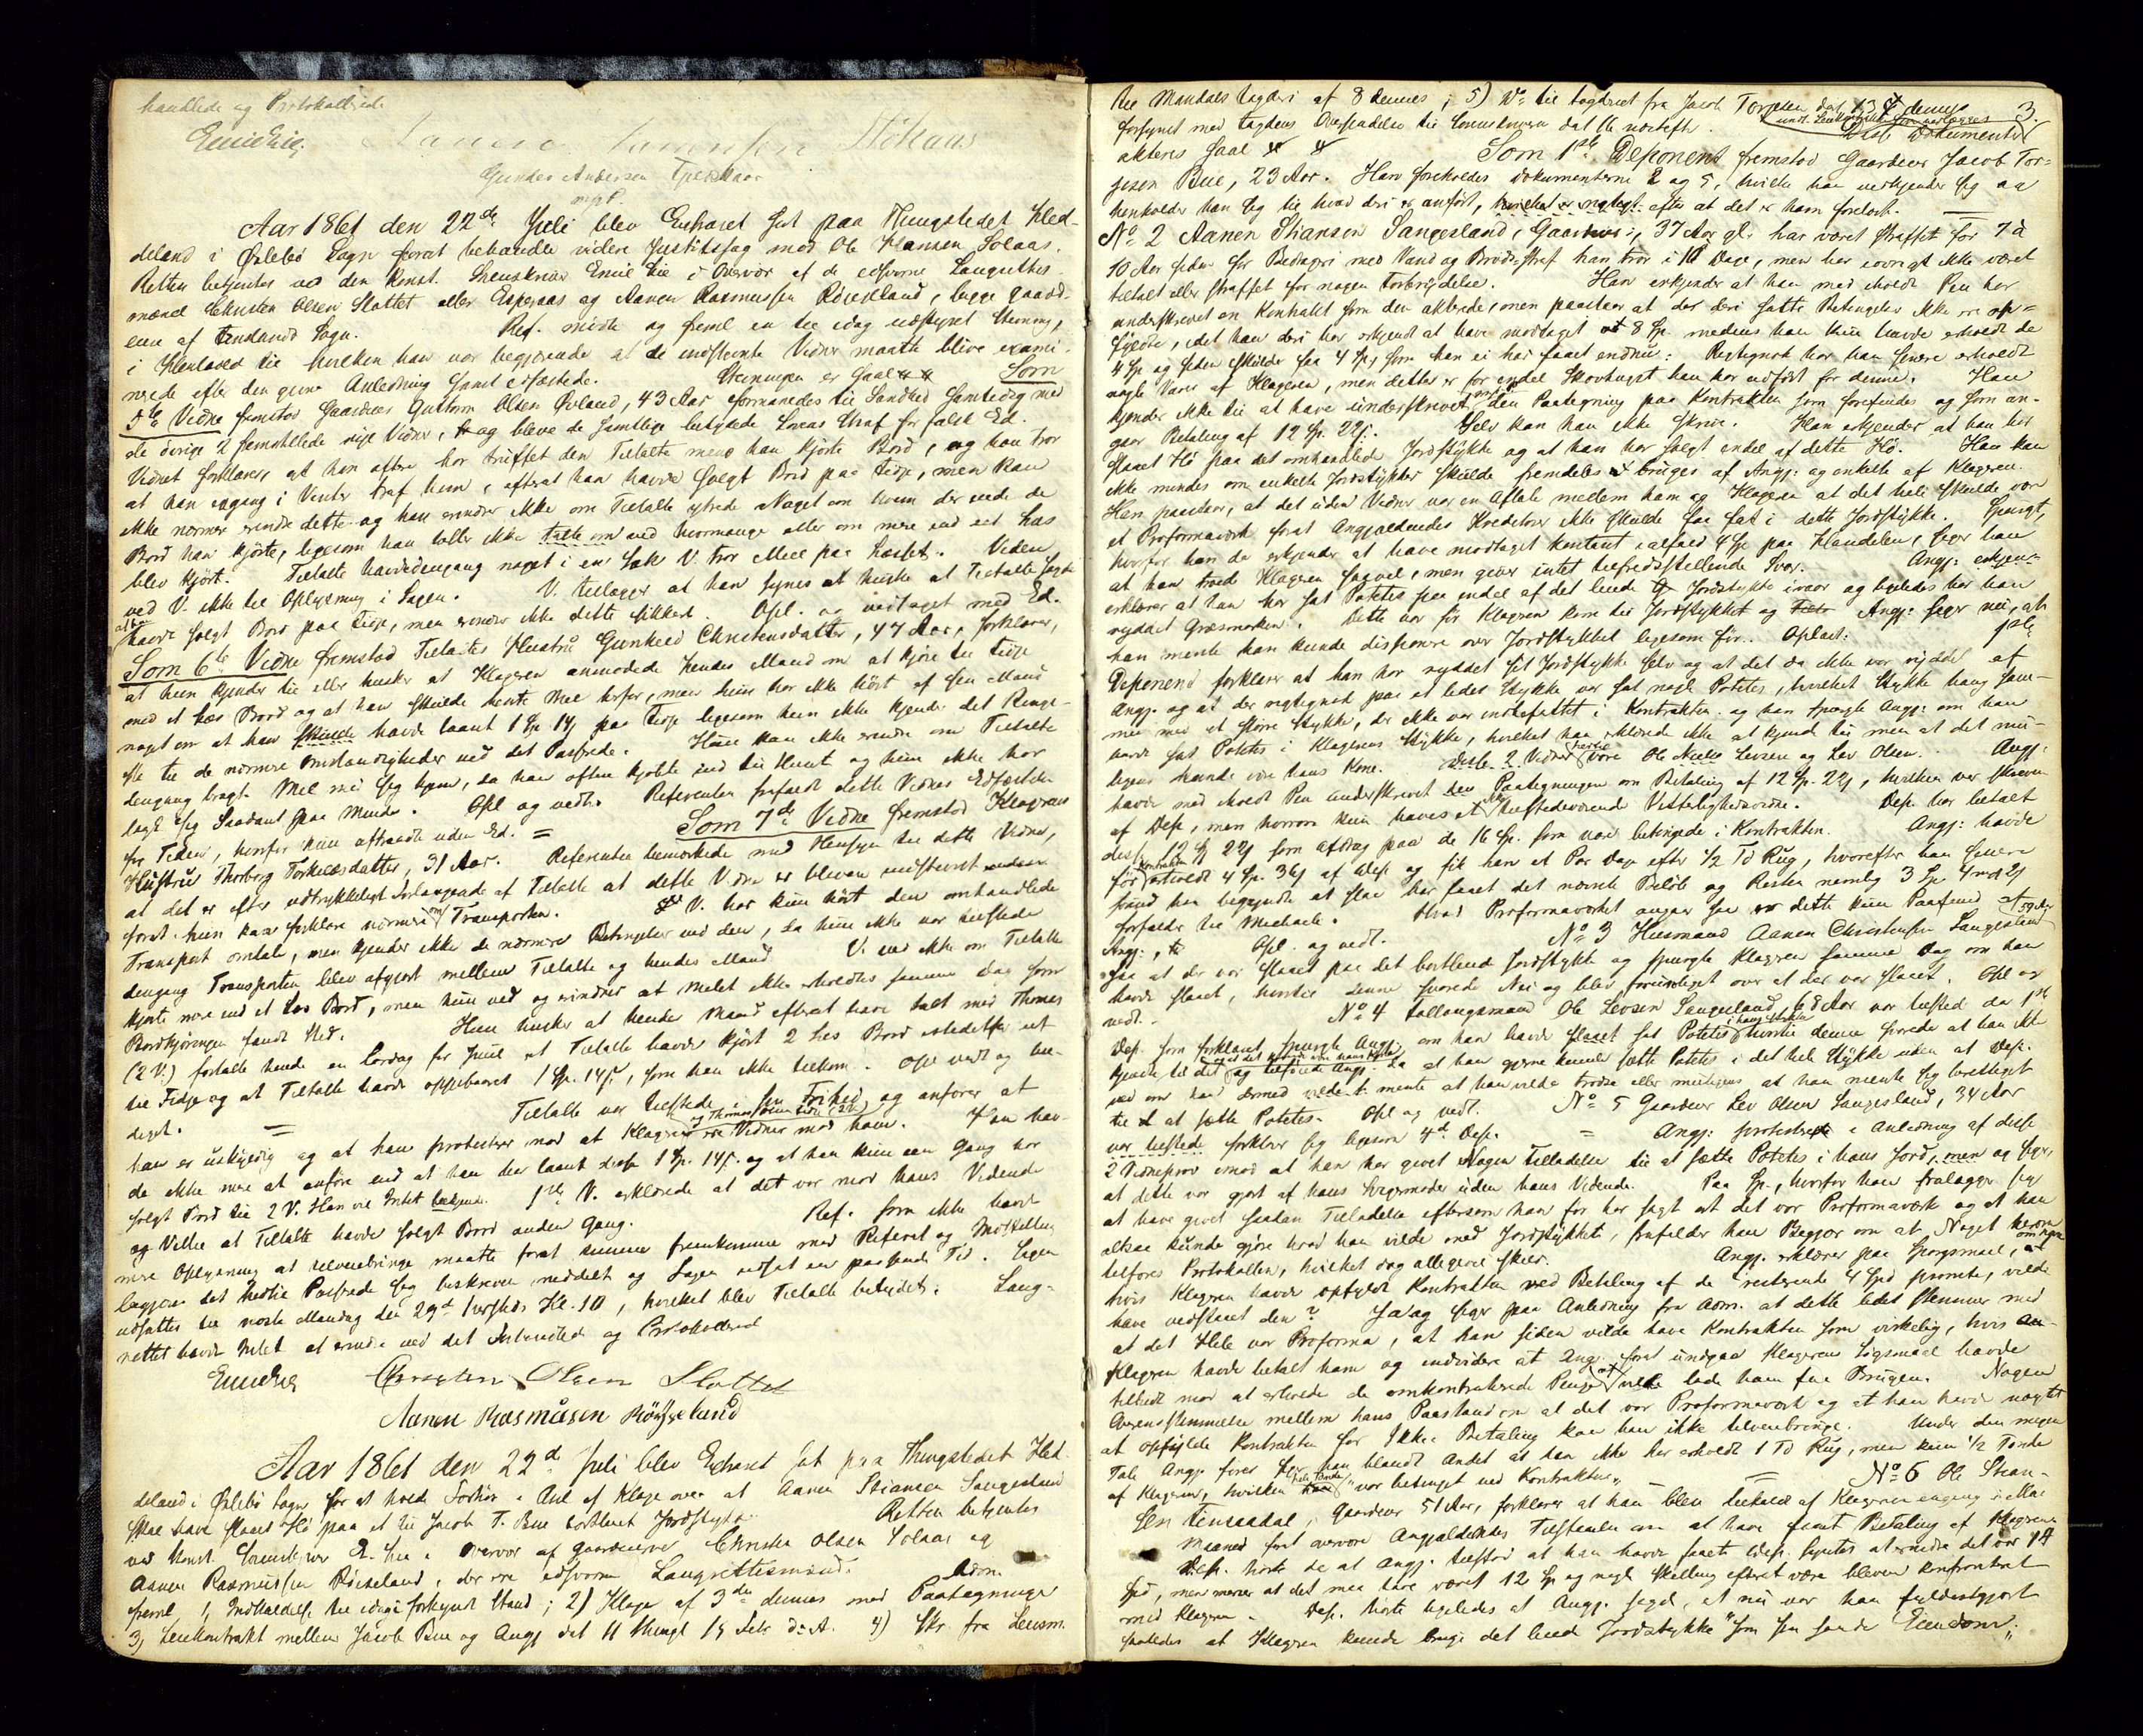 handlede og Protokollerede
Aanen
Gunder Andersen
mpt.
Aar 1861 den 22de Juli blev Extraret sat paa Thingstedet Hæd-
deland i Øslebø Sogn forat behandle videre Justitssag mod Ole Hansen Solaas.
Retten betjentes ved den konst. Sorenskriver Emil Lie i Overvær af de edsvorne Laugrettes-
mænd Christen Olsen Slottet eller Espeaas og Aanen Rasmussen Røiseland, begge gaard-
eiere af Sogn. Ref. mødte og freml en til idag udstyret Stevning,
i Henhold til hvilken han var begjærende at de indstevnte Vidner maatte blive exami-
nerede efter den givne Anledning samt edfæstede. Stevningen er saal. Som
5te Vidne fremstod Gaardeier Guttorm Olsen Øvland, 43 Aar formanedes til Sandhed samtidig med
de øvrige 2 fremstillede nye Vidner, og bleve de samtlige betydede Lovens Straf for falsk Ed.
Vidnet forklarer, at han oftere har truffet den Tiltalte mens han kjørte Bord, og han tror
at han engang i Vinter traf ham, efterat han havde solgt Bord paa Tidje, men kan
ikke nærmere erindre dette og han erindrer ikke om Tiltalte ytrede Noget om hvem der eiede de
Bord han kjørte, ligesom han heller ikke talte om ved hvormange eller om mere end eet Læs
blev kjørt. Tiltalte havde dengang noget i en Sæk V. tror Meel paa Læsset. Viden
ved V. ikke til Oplysning i Sagen. V. tillægger at han synes at huske at Tiltalte sagde
at han havde solgt Bord paa Tidje, men erindrer ikke dette sikkert. Opl. og vedtaget med Ed.
Som 6te Vidne fremstod Tiltaltes Hustru Gunhild Christensdatter, 47 Aar, forklarer,
at hun kjender til eller husker at Klageren anmodede hendes Mand om at kjøre til Tidje
med et Læs Bord og at han skulde hente Mel herfor, men hun har ikke hørt af sin Mand
noget om at han skulde havde laant 1 Sp 14 ß paa Tidje ligesom hun ikke kjender det Ringe-
ste til de nærmere Omstændigheder ved det Passerede. Hun kan ikke erindre om Tiltalte
dengang bragt Mel med sig hjem, da han oftere kjøbte ind til Huset og hun ikke har
lagt sig Saadant paa Minde. Opl og vedt. Referenten frafaldt dette Vidnes Edfæstelse
fra Tiden, hvorfor hun aftraadte uden Ed. = Som 7de Vidne fremstod Klagerens
Hustru Thorborg Torkelsdatter, 31 Aar. Referenten bemærkede med Hensyn til dette Vidne,
at det er efter udtrykkeligt Forlangende af Tiltalte at dette Vidne er bleven indstevnt
forat hun kan forklare nærmere om Transporten. V. har kun hørt den omhandlede
Transport omtale, men kjender ikke de nærmere Betingelser ved den, da hun ikke var tilstede
dengang Transporten blev afgjort mellem Tiltalte og hendes Mand V. ved ikke om Tiltalte
kjørte mere end et Læs Bord, men hun ved og erindrer at Melet ikke erholdtes samme Dag som
Bordkjøringen fandt Sted. Hun husker at hendes Mand efterat have talt med Thomas
(2 V.) fortalte hende en Lørdag før Juul at Tiltalte havde kjørt 2 Læs Bord istedetfor eet
til Tidje og at Tiltalte havde oppebaaret 1 Sp. 14 ß, som han ikke tilkom. Opl vedt og be-
ediget. = Tiltalte var tilstede i sin Frihed og anfører at
han er uskyldig og at han protesterer mod at Klageren og Thomas ere Vidner mod ham. Han hav-
de ikke mere at anføre end at han har laant disse 1 Sp. 14 ß. og at han kun een Gang har
solgt Bord til 2 V. Han vil Intet bekjende. 1ste V. erklærede at det var mod hans Vidende
og Villie at Tiltalte havde solgt Bord anden Gang. Ref. som ikke havde
mere Oplysning at tilveiebringe maatte forat kunne fremkomme med Referat og Indstilling
begjære det hidtil Passerede sig beskreven meddelt og Sagen udsat en passende Tid. Sagen
udsattes til næste Mandag den 29de Kl. 10, hvilket blev Tiltalte betydet. Laug-
rettet havde Intet at erindre ved det Indførte og Protokollerede
Christen Olsen Slottet
Aanen Rasmusen Röiseland
Aar 1861 den 22de Juli blev Extraret sat paa Thingstedet Hæd-
deland i Øslebø Sogn for at holde Forhør i Anl af Klage over at Aanen Stiansen Sangesland
skal have slaaet Hø paa et til Jacob T. Bue bortleiet Jordstykke. Retten betjentes
ved konst. Sorenskriver E. Lie i Overvær af Gaardeierne Christen Olsen Solaas og
Aanen Rasmussen Røiseland, der ere edsvorne Laugrettesmænd. Adm.
freml. 1, Indkaldelse til idag i forkyndt Stand; 2) Klage af 3die dennes med Paategninger
3, Leiekontrakt mellem Jacob Bue og Angj dat 11 thingl 15 Febr d: A. 4) Skr. fra Lensm.
3.
til Mandals Fogderi af 8 dennes; 5) Do til Fogderiet fra Jacob Torgesen dat 13 dennes
forsynet med Fogdens Oversendelse til Sorenskriveren dat Disse Dokumenter
akteres saal. Som 1ste Deponent fremstod Gaardeier Jacob Tor-
gesen Bue, 23 Aar. Han foreholdes Dokumenterne 2 og 5, hvilke han vedkjender sig og
henholder han sig til hvad deri er anført, hvilket er rigtigt efter at det er ham forelæst.
No 2 Aanen Stiansen Sangesland, Gaardeier, 37 Aar gl. har været straffet for 7 à
10 Aar siden for Bedrageri med Vand og Brøds-Straf han tror i 10 Dage, men har iøvrigt ikke været
tiltalt eller straffet for nogen Forbrydelse. Han erkjender at han med iholdt Pen har
underskrevet en Kontrakt som den akterede, men paastaar at der deri satte Betingelser ikke ere op-
fyldte, idet han deri har erkjendt at have modtaget 8 Sp. medens han kun havde erholdt de
4 Sp og siden skulde faa 4 Sp, som han ei har faaet endnu. Rigtignok har han senere erholdt
nogle Varer af Klageren, men dette er for endel Skovhugst han har udført for denne. Han
kjender ikke til at have underskrevet den Paategning paa Kontrakten som forefindes og som an-
gaar Betaling af 12 Sp. 22 ß. Selv kan han ikke skrive. Han erkjender at han har
slaaet Hø paa det omhandlede Jordstykke og at han har solgt endel af dette Hø. Han kan
ikke mindes om enkelte Jordstykker skulde fremdeles bruges af Angj: og enkelte af Klageren.
Han paastaar, at det uden Vidner var en Aftale mellem ham og Klageren at det hele skulde være
et Proformaværk forat Angjældendes Kreditorer ikke skulde faa fat i dette Jordstykke. Spurgt,
hvorfor han da erkjender at have modtaget kontant ialfald 4 Sp. paa Handelen, siger han
at han troede Klageren saavel, men giver intet tilfredsstillende Svar. Angj: erkjen-
erklærer at han har sat Potetes paa endel af det leiede Jordstykke ivaar og ligeledes har han
ryddet Græsmarken. Dette var før Klageren kom til Jordstykket og Angj: siger nei, at
han mente han kunde disponere over Jordstykket ligesom før. Oplæst. 1ste
Deponent forklarer at han har ryddet sit Jordstykke selv og at det da ikke var ryddet af
Angj. og at der rigtignok paa et lidet Stykke var sat nogle Potetes, hvilket Stykke hang sam-
men med et større Stykke, der ikke var indbefattet i Kontrakten, og han spurgte Angj: om han
havde sat Potetes i Klagerens Stykke, hvilket han erklærede ikke at kjende til, men at det mu-
ligens kunde være hans Kone. Disse 2 Vidner vare Ole Levsen og Lev Olsen. Angj.
havde med iholdt Pen underskrevet den Paategningen om Betaling af 12 Sp. 22 ß, hvilken var skreven
af Dep, men hvorom kun haves tilstedeværende Vitterlighedsvidne. Dep. har betalt
disse 12 Sp 22 ß som Afdrag paa de 16 Sp. som var betingede i Kontrakten. Angj: havde
før Kontrakten erholdt 4 Sp. 36 ß af Dep og fik han et Par Dage efter 1/2 Td Rug, hvorefter han senere
har faaet det nævnte Beløb og Resten nemlig 3 Sp 4 ort 2 ß
forfalder til Michaeli. Hvad Proformaværket angaar saa er dette kun Paafund af
Angj:, Opl. og vedt. No 3 Huusmand Aanen Christensen Sangesland
saa at der var slaaet paa det bortleiede Jordstykke og spurgte Klageren samme Dag om han
havde slaaet, hvortil denne svarede Nei og blev forundret over at der var slaaet. Opl og
vedt. No 4 Follaugsmand Ole Levsen Sangesland, 68 Aar var tilsted da 1ste
Dep. som forklaret, spurgte Angj: om han havde sat Potetes i hans Stykke hvortil denne svarede at han ikke
kjendte til det og tilføiede Angj. da at han gjerne kunde sætte Potetes i det hele Stykke uden at Dep.
ved om han dermed mente at han vilde trodse eller muligens at han mente sig berettiget
til at sætte Potetes. Opl og vedt. No 5 Gaardeier Lev Olsen Sangesland, 34 Aar
var tilstede forklarer sig ligesom 4de Dep. = Angj: protesterede i Anledning af disse
2 Vidneprov imod at han har givet Nogen Tilladelse til at sætte Potetes i hans Jord, men og siger,
at dette var gjort af hans Svigermoder uden hans Vidende. Paa Sp., hvorfor han fralægger sig
at have givet saadan Tilladelse eftersom han før har sagt at det var Proformaværk og at han
altsaa kunde gjøre hvad han vilde med Jordstykket, frafalder han Begjær om at Noget herom
tilføres Protokollen, hvilket dog alligevel skeer. Angj. erklærer paa Spørgsmaal, om han
hvis Klageren havde opfyldt Kontrakten ved Betaling af de resterende 4 Spd promte, vilde
have vedstaaet den? Ja og siger paa Anledning fra Adm. at dette lidet stemmer med
at det Hele var Proforma, at han siden vilde have Kontrakten som virkelig, hvis
Klageren havde betalt ham og endvidere at Ang. forat undgaa Klagerens Søgsmaal havde
tilbudt mod at erholde de omkontraherede Penge at ville lade ham faa Brugen. Nogen
Overensstemmelse mellem hans Paastand om at det var Proformaværk og at han havde nægtet
at opfylde Kontrakten for Ikke-Betaling kan han ikke tilveiebringe. Under den megen
Tale Angj. fører siger han blandt Andet at han ikke har erholdt 1 Td Rug, men kun 1/2 Tønde
af Klageren, hvilken hele Tønde "var betinget ved Kontrakten". No 6 Ole Stean-
sen Finsaadal, Gaardeier 51 Aar, forklarer at han blev tilkaldt af Klageren engang i Mai
Maaned forat overvære Angjældendes Tilstaaelse om at have faaet Betaling af Klageren
Dep. hørte da at Angj. tilstod at han havde faaet. Dep. synes at erindre det var 14
Spd, men mener at det maa have været 12 Sp og nogle Skilling efterat være bleven konfronteret
med Klageren. Dep. hørte ligeledes at Angj. sagde, at nu var han fyldestgjort
saaledes at Klageren kunde bruge det leiede Jordstykke "som sin sande Eiendom".